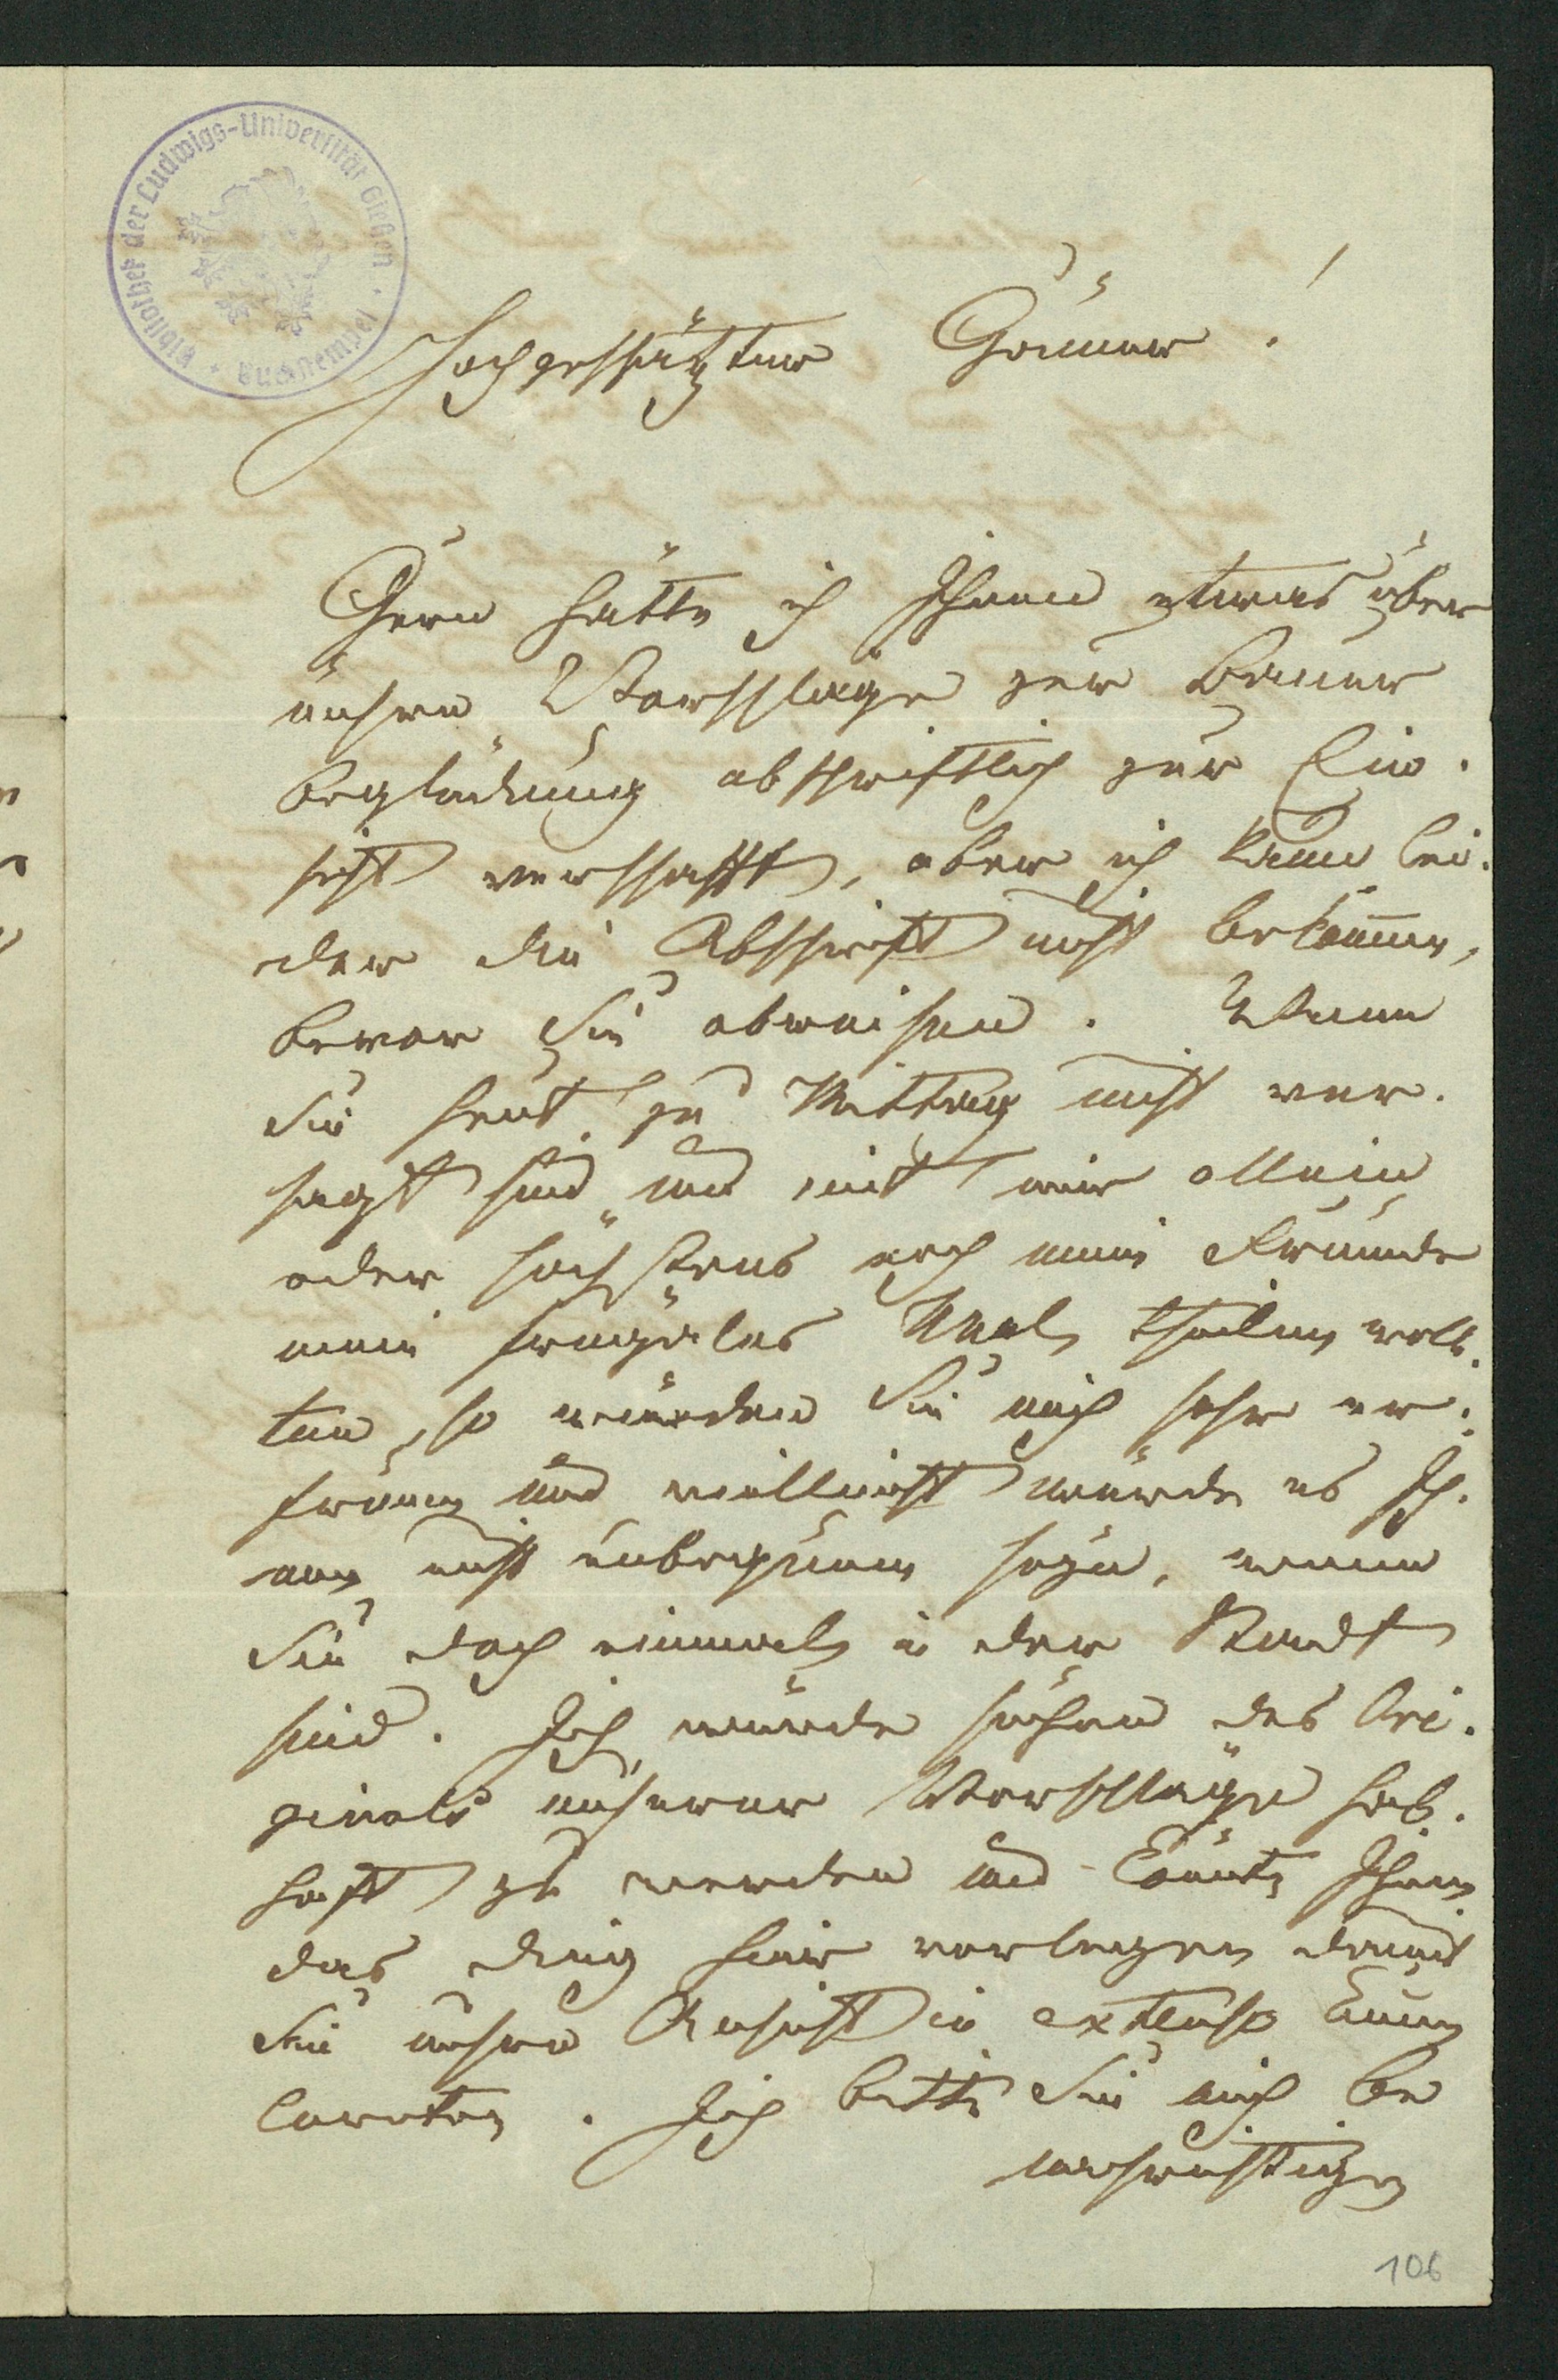 Bibliothek der Ludwigs-Universität Gießen · Buchstempel ·
Hochgeschätzter Gönner!
Gern hätte ich Ihnen etwas über
unsere Vorschläge zur Bauer
beglückung abschriftlich zur Ein-
sicht verschafft, aber ich kann lei-
der die Abschrift nicht bekommen,
bevor Sie abreisen. Wenn
Sie heut zu Mittag nicht ver-
sagt sind und mit mir allein
oder höchstens noch mein Freunde
mein frugales Mahl theilen woll-
ten, so würden Sie mich sehr er-
freuen und vielleicht würde es Ih-
nen nicht unbequem seyn, wenn
Sie doch einmal in der Stadt
sind. Ich würde suchen des Ori-
ginals unserer Vorschläge hab-
haft zu werden und könnte Ihnen
das Ding hier vorlegen damit
Sie unsere Ansicht in extenso kennen
lernten. Ich bitte Sie mich be
nachrichtigen
106